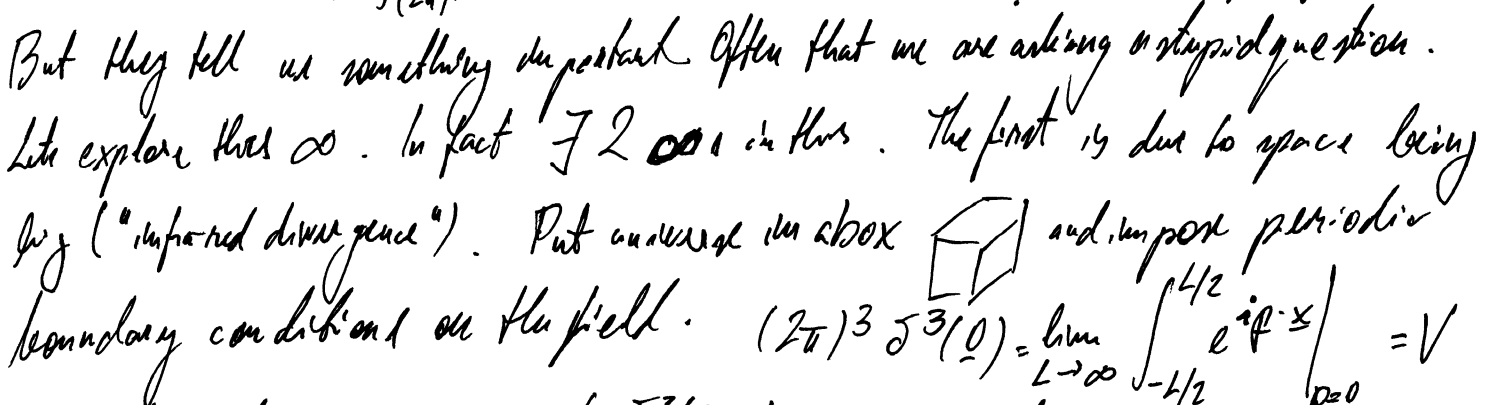 But they tell us something important. Often that we are asking a stupid question.
Lets explore this ∞. In fact ∃ 2 ∞s in this. The first is due to space being
big ("infrared divergence"). Put universe in a box and impose periodic
boundary conditions on the field. (2π)³ δ³(0) = lim_{L→∞} ∫_{-L/2}^{L/2} e^{i p·x}|_{p=0} = V